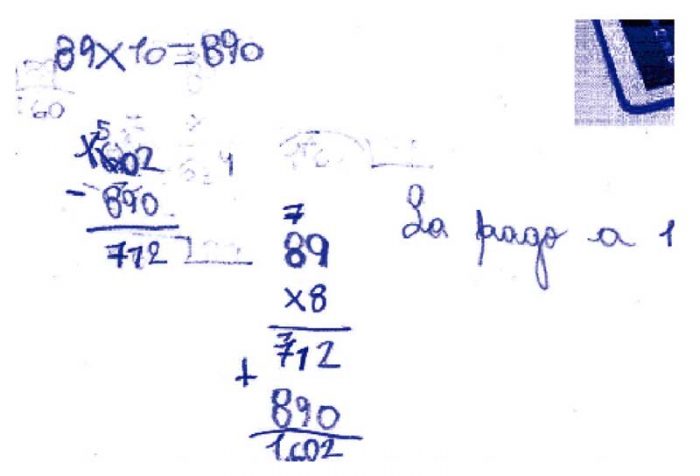 89×10=890
5
1602
- 890
712
7
89
×8
712
+
890
1.602
La pago a 1